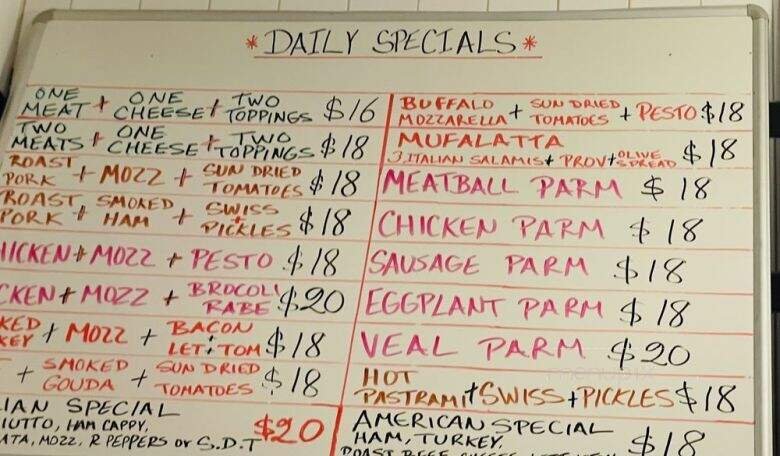 *DAILY SPECIALS*
ONE MEAT + ONE CHEESE + TWO TOPPINGS $16
TWO MEATS + ONE CHEESE + TWO TOPPINGS $18
ROAST PORK + MOZZ + SUN DRIED TOMATOES $18
ROAST PORK + SMOKED HAM + SWISS + PICKLES $18
HICKEN + MOZZ + PESTO $18
CKEN + MOZZ + BROCOLI RABE $20
KED KEY + MOZZ + BACON LET + TOM $18
+ SMOKED GOUDA + SUN DRIED TOMATOES $18
IAN SPECIAL $20
IUTTO, HAM CAPPY,
ATA, MOZZ, R PEPPERS or S.D.T
BUFFALO MOZZARELLA + SUN DRIED TOMATOES + PESTO $18
MUFALATTA $18
3 ITALIAN SALAMIS + PROV + OLIVE SPREAD
MEATBALL PARM $18
CHICKEN PARM $18
SAUSAGE PARM $18
EGGPLANT PARM $18
VEAL PARM $20
HOT PASTRAMI + SWISS + PICKLES $18
AMERICAN SPECIAL $18
HAM, TURKEY,